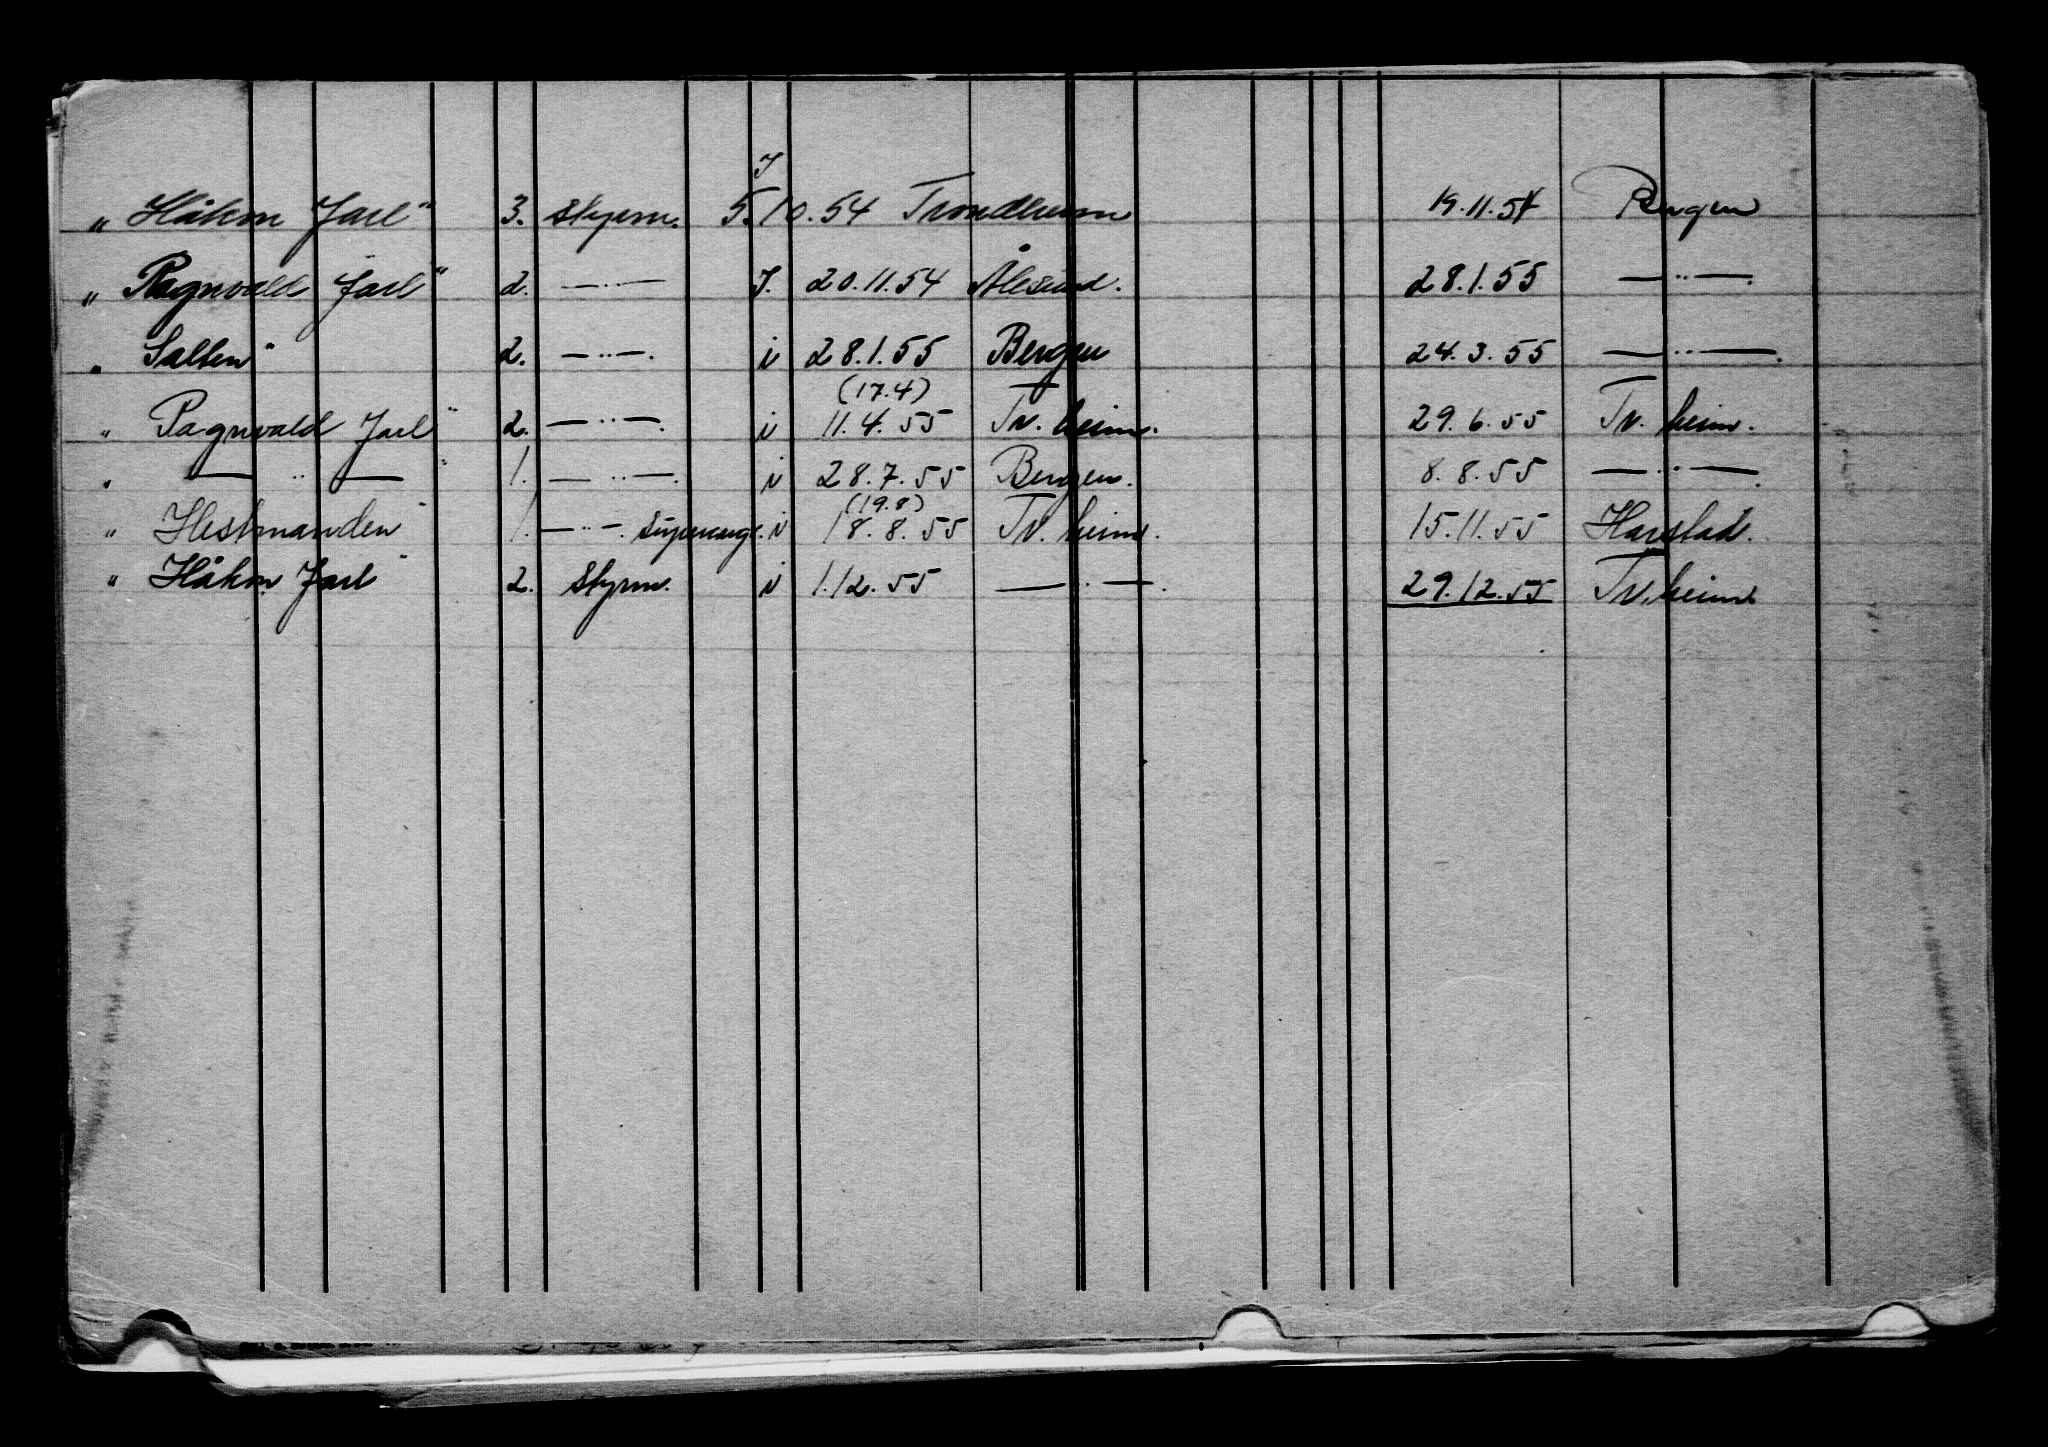 „ Håkon Jarl" 3. styrm. I 5.10.54 Trondheim 19.11.54 Bergen
„ Ragnvald Jarl" 2. —..— I. 20.11.54 Ålesund. 28.1.55 —..—.
„ Salten" 2. —..—. i 28.1.55 Bergen 24.3.55 —..—.
„ Ragnvald Jarl" 2. —..—. i (17.4) 11.4.55 Tr.heim. 29.6.55 Tr.heim.
„ —..—" 1. —..—. i 28.7.55 Bergen. 8.8.55 —..—.
„ Hestmanden" 1. —..—. i (19.8) 18.8.55 Tr.heim. 15.11.55 Harstad.
„ Håkon Jarl" 2. styrm. i 1.12.55 —..—. 29.12.55 Tr.heim.